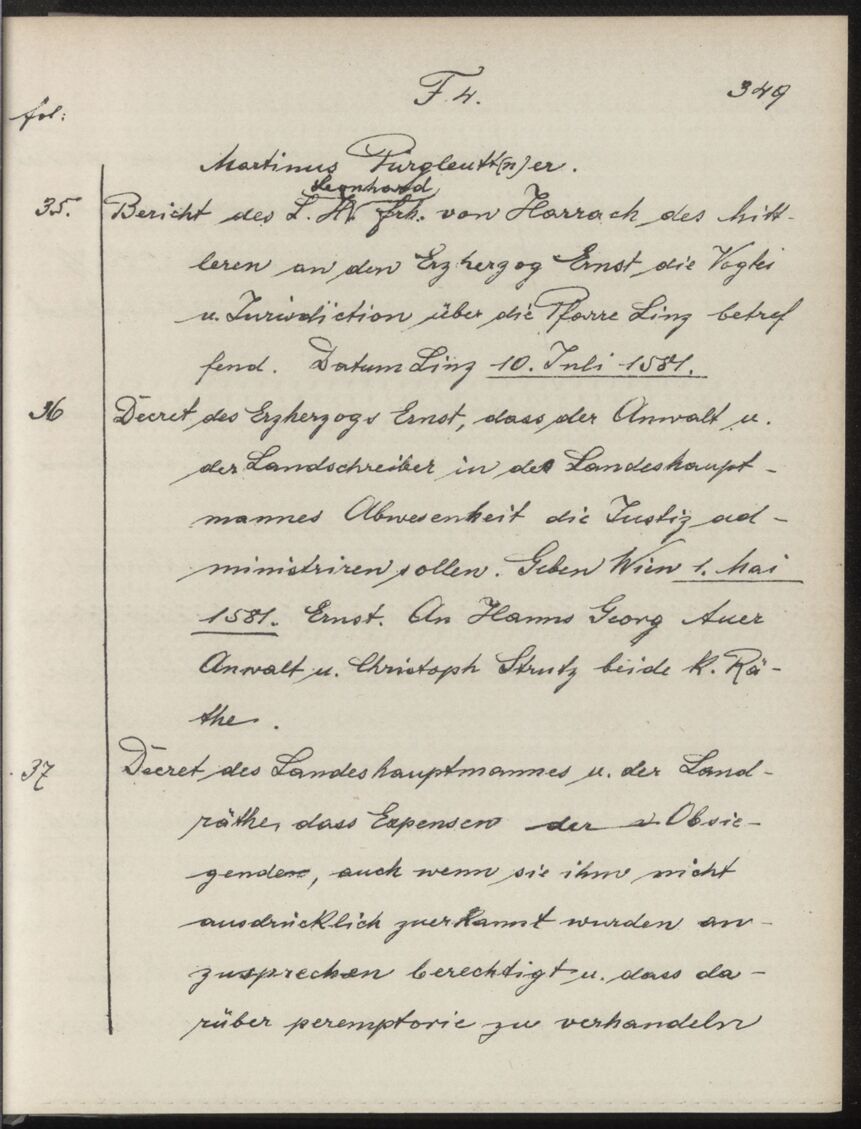 F. 4.
349
fol:
Martinus Pürgleutt(n)er.
Leonhard
35. Bericht des L. H. Frh. von Harrach des mitt-
leren an den Erzherzog Ernst, die Vogtei
u. Jurisdiction über die Pfarre Linz betref
fend. Datum Linz 10. Juli 1581.
36 Decret des Erzherzogs Ernst, dass der Anwalt u.
der Landschreiber in des Landeshaupt-
mannes Abwesenheit die Justiz ad-
ministriren sollen. Geben Wien 1. Mai
1581. Ernst. An Hanns Georg Auer
Anwalt u. Christoph Strutz beide K. Rä-
the.
37 Decret des Landeshauptmannes u. der Land-
räthe, dass Expensen der Obsie-
gende, auch wenn sie ihm nicht
ausdrücklich zuerkannt wurden an-
zusprechen berechtigt u. dass da-
rüber peremptorie zu verhandeln